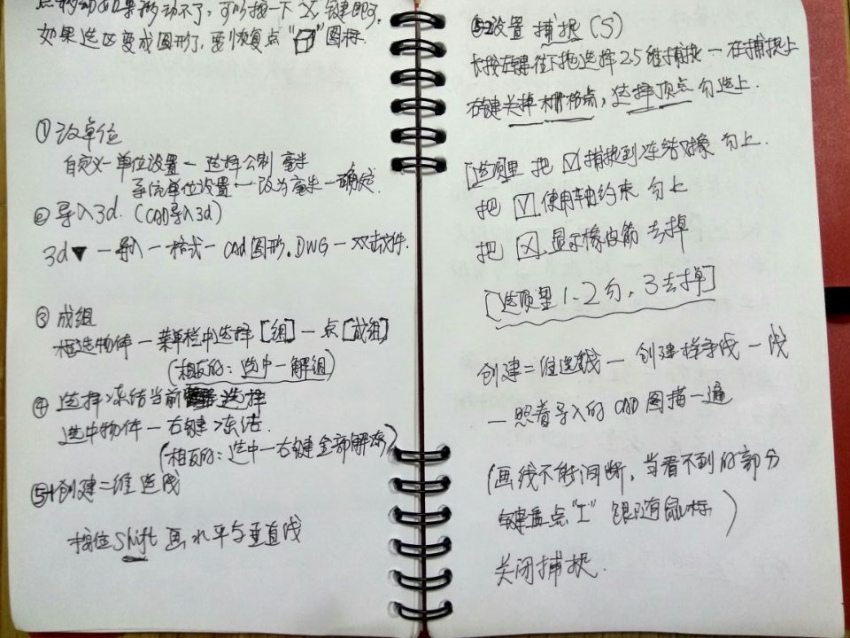 点移动如果移动不了，可以按一下"X"键即可.
如果选区变成圆形了，要恢复点“ ”图标.
①改单位
自定义—单位设置—选择公制 毫米
系统单位设置—改为毫米—确定.
②导入3d.（CAD导入3d）
3d▼—导入—格式—CAD图形.DWG—双击文件.
③成组
框选物体—菜单栏中选择[组]—点[成组]
（相反的：选中—解组）
④选择冻结当前选择
选中物体—右键冻结.
（相反的：选中—右键全部解冻）
⑤-1创建二维线
按住shift画水平与垂直线
⑤-2设置 捕捉（S）
长按左键往下拖选择2.5维捕捉—在捕捉上
右键关掉栅格点，选择顶点 勾选上.
[选项里 把☑捕捉到冻结对象 勾上.
把☑.使用轴约束 勾上
把☒.显示橡皮筋 去掉
[选项里1.2勾，3去掉]
创建二维线—创建样条线—线
—照着导入的CAD图描一遍
（画线不能间断，当看不到的部分
键盘点“I”跟随鼠标）
关闭捕捉.